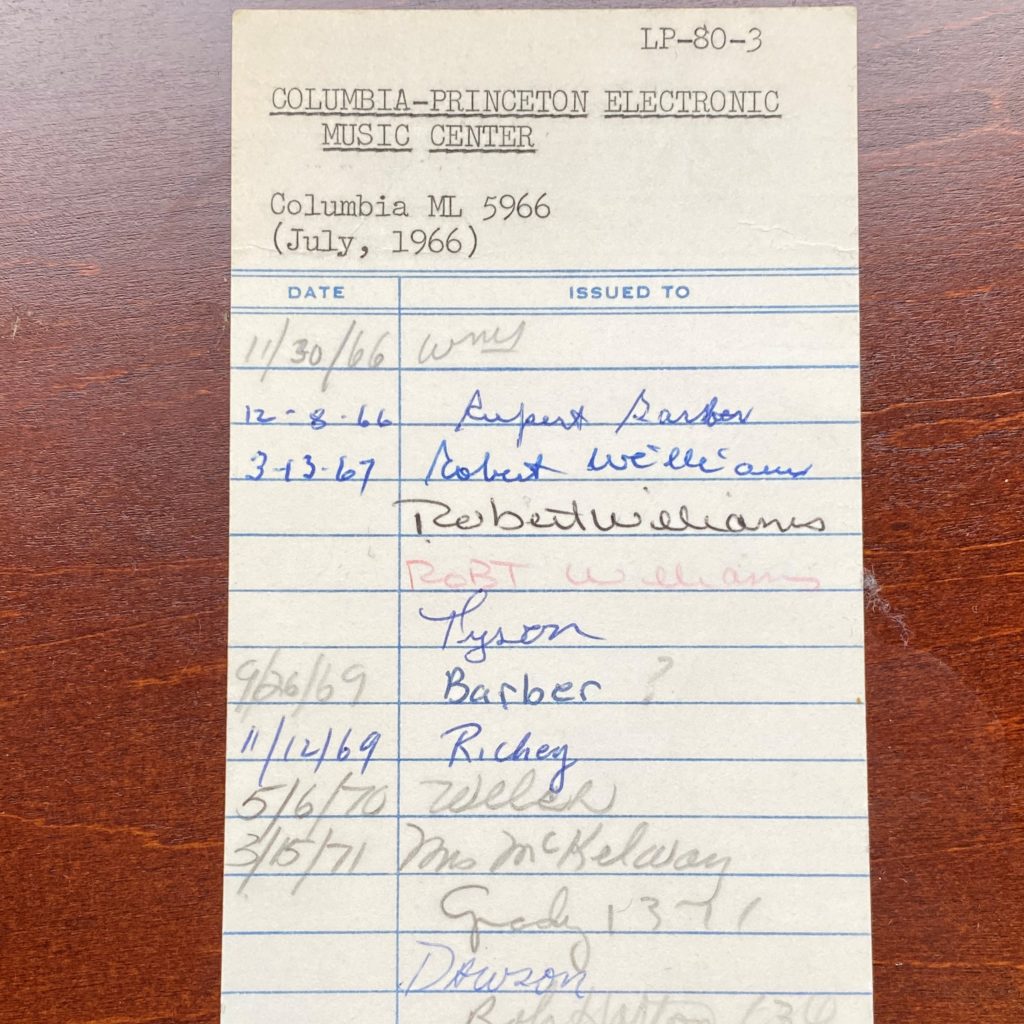 LP-80-3
COLUMBIA-PRINCETON ELECTRONIC
MUSIC CENTER
Columbia ML 5966
(July, 1966)
DATE ISSUED TO
11/30/66
12-8-66 Rupert Barber
3-13-67 Robert Williams
Robert Williams
RoBT Williams
Tyson
9/26/69 Barber ?
11/12/69 Richey
5/6/70 Welch
3/15/71 Mrs McKelway
Grady
Dawson
Bob